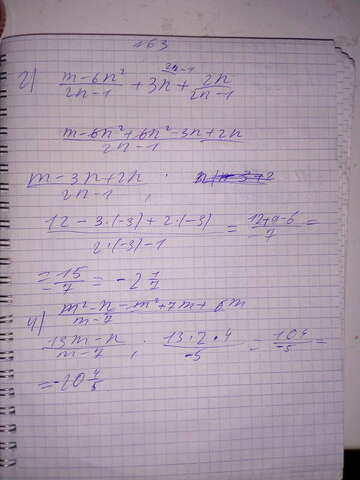 163
2) (m-6n²)/(2n-1) + 3n^(2n-1) + 2n/(2n-1)
(m-6n²+6n²-3n+2n)/(2n-1)
(m-3n+2n)/(2n-1),
(12-3·(-3)+2·(-3))/(2·(-3)-1) = (12+9-6)/(-7) =
= 15/(-7) = -2 1/7
4) (m²-n-m²+7m+6m)/(m-7)
(13m-n)/(m-7), (13·2·4)/(-5) = 104/(-5) =
= -20 4/5